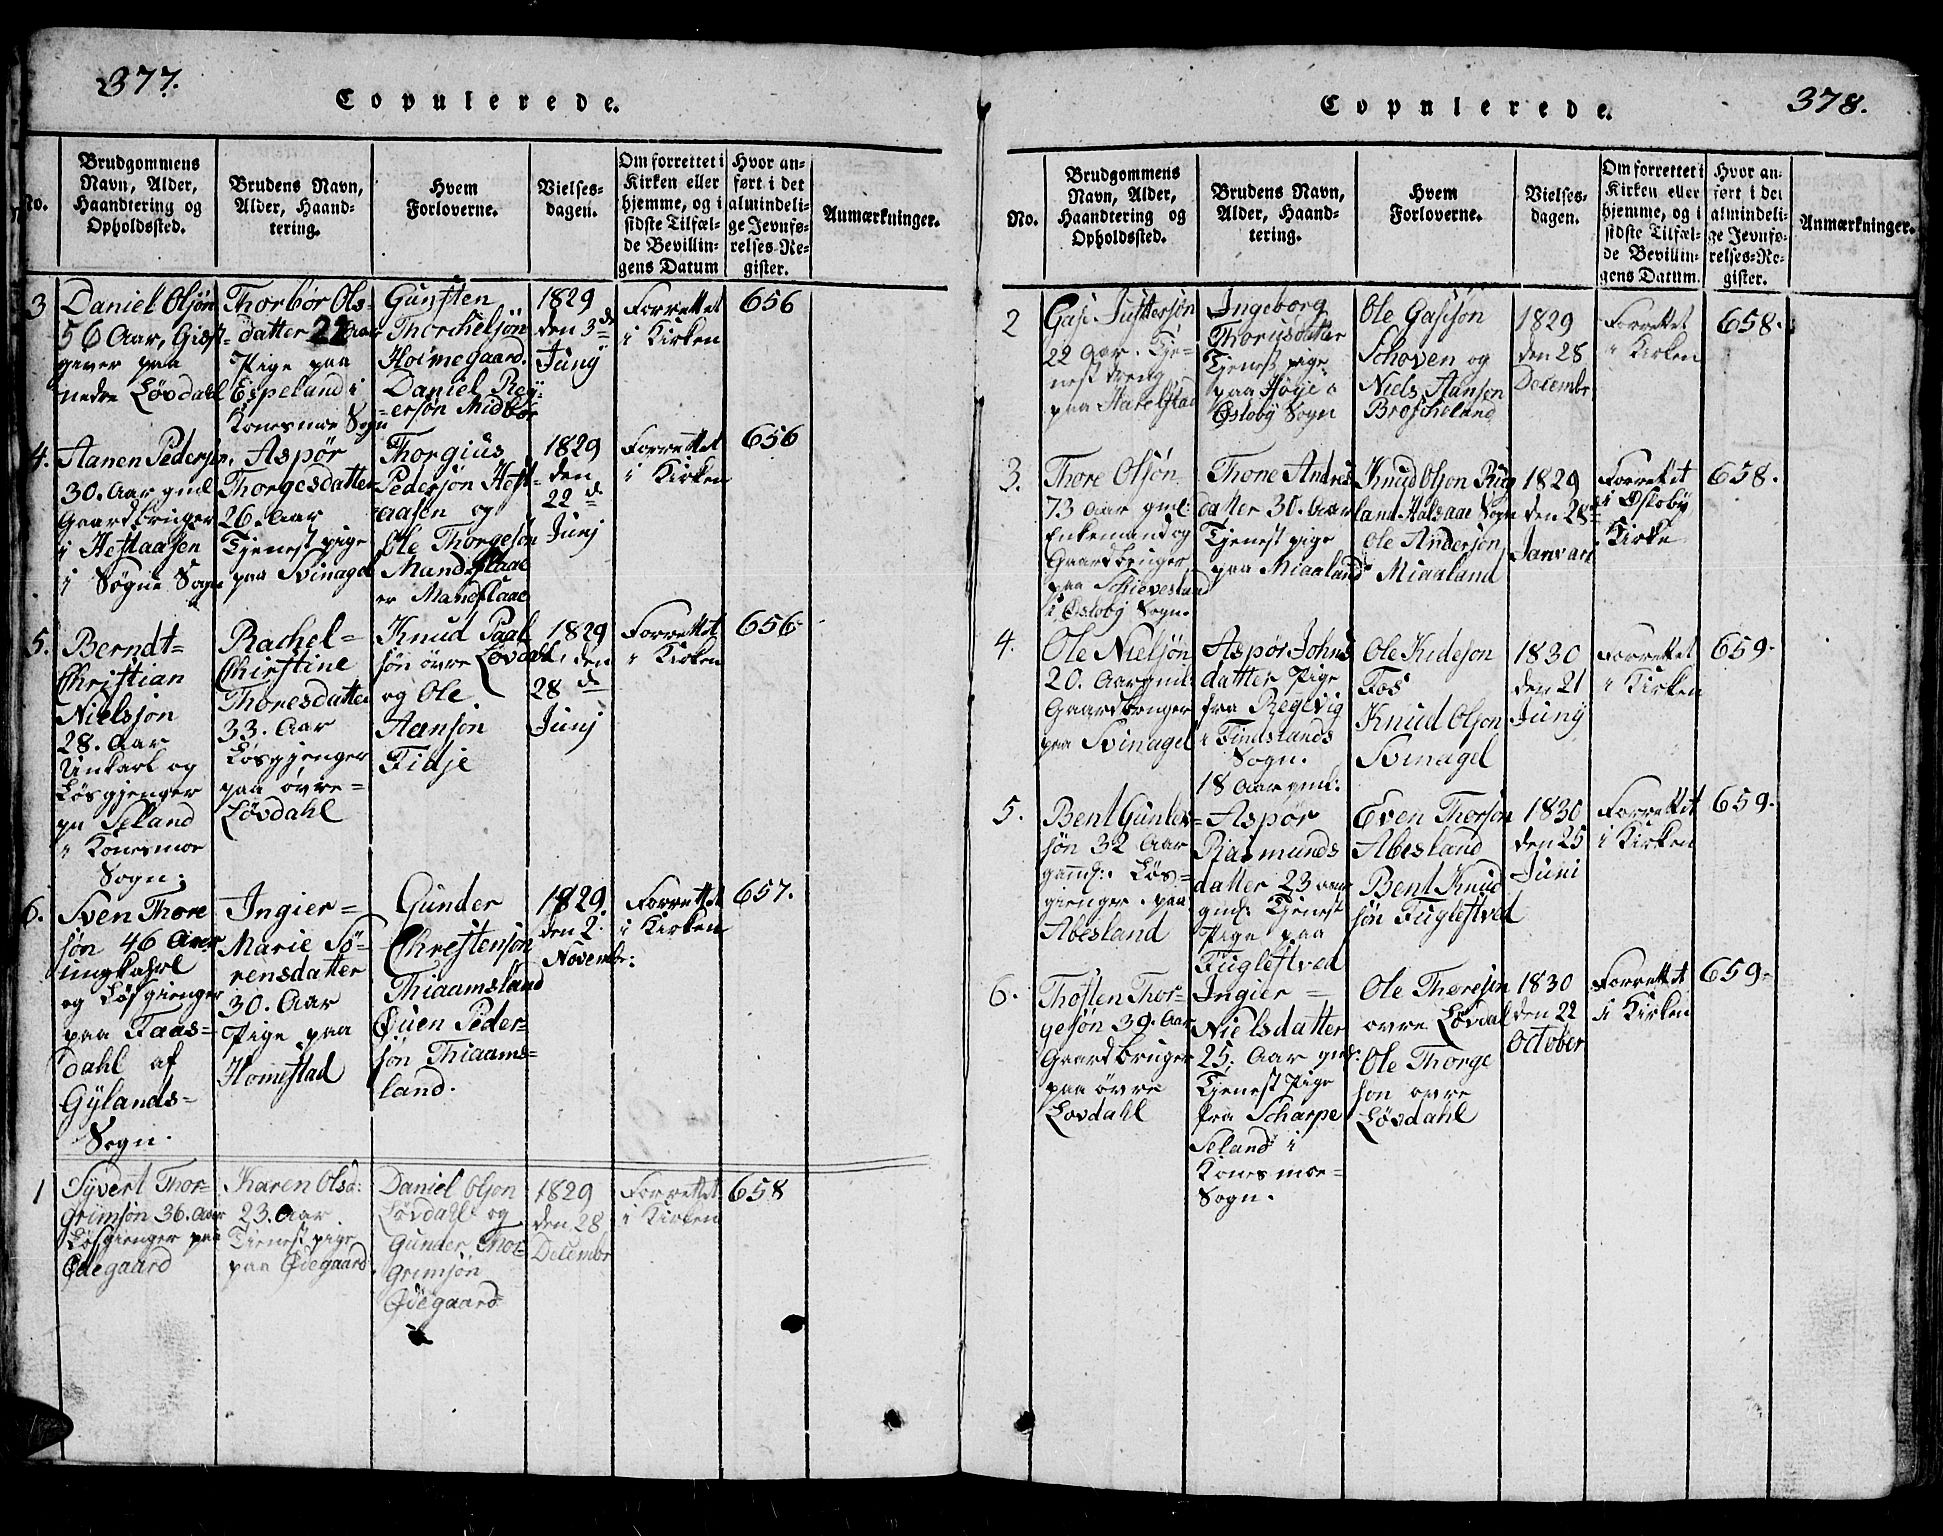 377.
Copulerede.
No.
Brudgommens
Navn, Alder,
Haandtering og
Opholdssted.
Brudens Navn,
Alder, Haand-
tering.
Hvem
Forloverne.
Vielses-
dagen.
Om forrettet i
Kirken eller
hjemme, og i
sidste Tilfæl-
de Bevillin-
gens Datum
Hvor an-
ført i det
almindeli-
ge Jevnfø-
relses-Re-
gister.
Anmærkninger.
3
Daniel Olsøn
56 Aar, Giest-
giver paa
nedre Løvdahl
Thorbør Ols-
datter 22 Aar
Pige paa
Espeland i
Konesmoe Sogn
Gunsten
Thorkelsøn
Holmegaard.
Daniel Rey-
ersøn Midbøe
1829
den 3de
Junÿ
Forrettet
i Kirken
656
4.
Aanen Pedersen
30. Aar gml
Gaardbruger
i Hestaasen
i Søgne Sogn
Aspør
Thorgesdatter
26. Aar
Tjenestpige
paa Svinagel
Thorgius
Pedersøn Hest-
aasen og
Ole Thorgesøn
Mandflaae
er Mandflaae
1829
den
22d
Junj
Forrettet
i Kirken
656
5.
Berndt-
Christian
Nielsjøn
28. Aar
Unkarl og
Løsgjenger
pa Seland
i Konesmoe
Sogn.
Rachel-
Christine
Thoresdatter
33. Aar
Løsgjenger
paa øvre-
Løvdahl
Knud Paal
søn øvre Løvdahl
og Ole
Aansøn
Fidje
1829
den
28de
Junj
Forrettet
i Kirken
656
6.
Sven Thore
søn 46 Aar
ungkahrl
og Løsgienger
paa Faas-
dahl af
Gÿlands-
Sogn.
Ingier-
Marie Sö-
rensdatter
30. Aar
Pige paa
Homestad
Gunder
Christensøn
Thiaamsland
Øuen Peder-
søn Thiaams-
land.
1829.
den 2.
Novembr:
Forrettet
i Kirken
657.
1
Sÿvert Thor-
grimsøn 36. Aar
Løsgienger paa
Ødegaard
Karen Olsd:
23. Aar
Tienestpige
paa Ødegaard
Daniel Olson
Løvdahl og
Gunder Thor-
Grimsøn
Ødegaard
1829
den 28
Decembr
Forrettet
i Kirken
658
378.
Copulerede.
No.
Brudgommens
Navn, Alder,
Haandtering og
Opholdssted.
Brudens Navn,
Alder, Haand-
tering.
Hvem
Forloverne.
Vielses-
dagen.
Om forrettet i
Kirken eller
hjemme, og i
sidste Tilfæl-
de Bevillin-
gens Datum.
Hvor an-
ført i det
almindeli-
ge Jevnfø-
relses-Re-
gister.
Anmærkninger.
2
Gasi Justersøn
22 Aar. Tje-
nestdreng
paa Harelstad
Ingeborg
Thorisdatter
Tjenestpige
paa Høge
Øsleby Sogn
Ole Gasisøn
Schoven og
Niels Aansen
Broscheland
1829
den 28
Decembr
Forrettet
i Kirken
658.
3.
Thore Olsøn
73 Aar gml:
Enkemand og
Gaardbruger
paa Schievesland
i Øsleby Sogn.
Thone Andres
datter 30. Aar
Tjenestpige
paa Miaaland
Knud Olson Rug
land. Halsaae Sogn
Ole Andersøn
Miaaland
1829
den 28d
Januari
Forrettet
i Øsleby
Kirke
658.
4.
Ole Nielsøn
20. Aar gml:
Gaardbruger
paa Svinagel
Aspør Johns
datter Pige
fra Regevig
i Findslands
Sogn.
18 Aar gml:
Ole Kidesøn
Fos
Knud Olson
Svinagel
1830
den 21
Junÿ
Forrettet
i Kirken
659.
5.
Bent Gunder-
søn 32 Aar
gaml: Løs-
gienger paa
Abesland
Aspør
Rasmunds
datter 23 aar
gml: Tjenest
Pige paa
Fuglestved
Even Thorson
Abesland
Bent Knud
søn Fuglestved
1830
den 25
Juni
Forrettet
i Kirken
659.
6.
Thosten Thor-
gesøn 39. Aar
Gaardbruger
paa øvre
Lovdahl
Ingier-
Nielsdatter
25. Aar gml:
Tjenest Pige
fra Scharpe
Seland i
Konesmoe-
Sogn.
Ole Thoresøn
ovre Løvdal
Ole Thorge
søn ovre
Løvdahl
1830
den 22
October
Forrettet
i Kirken
659-